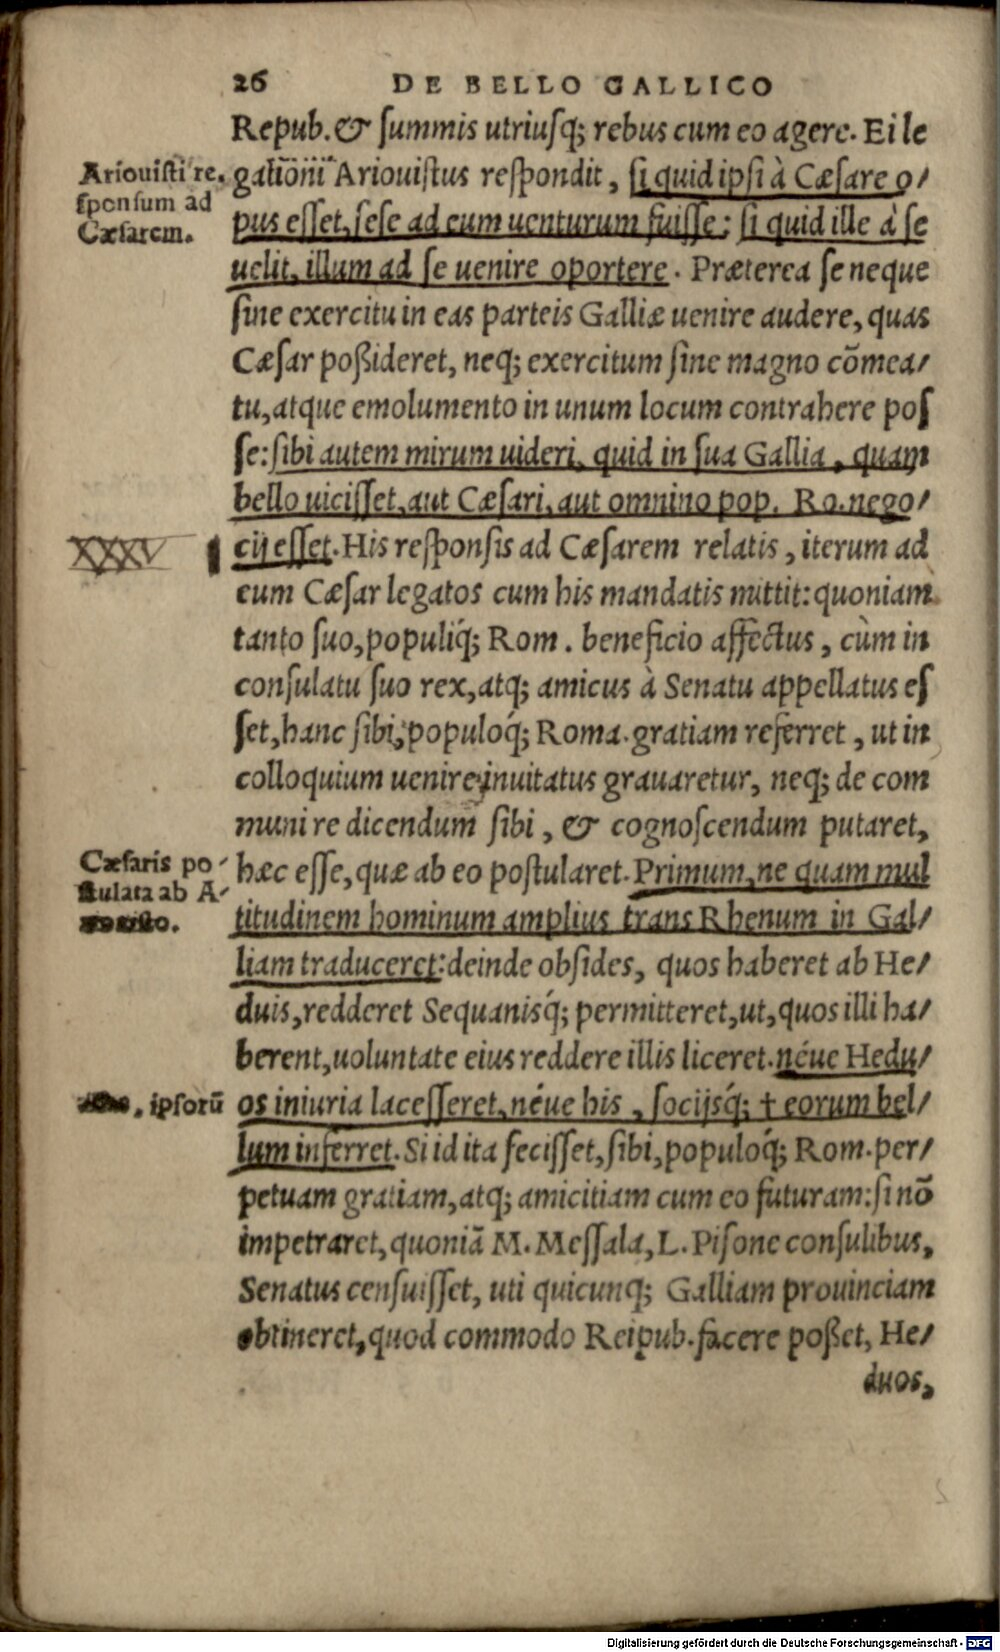 26 DE BELLO GALLICO
Repub. & ſummis utriuſq; rebus cum eo agere. Ei le
Ariouiſti re,
ſponſum ad
Cæſarem.
gationi Ariouiſtus reſpondit, ſi quid ipſi à Cæſare o/
pus eſſet, ſeſe ad eum uenturum fuiſſe: ſi quid ille à ſe
uelit, illum ad ſe uenire oportere. Præterea ſe neque
ſine exercitu in eas parteis Galliæ uenire audere, quas
Cæſar poßideret, neq; exercitum ſine magno cõmea/
tu, atque emolumento in unum locum contrahere poſ
ſe: ſibi autem mirum uideri, quid in ſua Gallia, quam
bello uiciſſet, aut Cæſari, aut omnino pop. Ro. nego/
XXXV
cij eſſet. His reſponſis ad Cæſarem relatis, iterum ad
eum Cæſar legatos cum his mandatis mittit: quoniam
tanto ſuo, populiq́; Rom. beneficio affectus, cùm in
conſulatu ſuo rex, atq; amicus à Senatu appellatus eſ
ſet, hanc ſibi, populoq́; Roma. gratiam referret, ut in
colloquium uenire inuitatus grauaretur, neq; de com
muni re dicendum ſibi, & cognoſcendum putaret,
Cæſaris po/
ſtulata ab A/
hæc eſſe, quæ ab eo poſtularet. Primum, ne quam mul
titudinem hominum amplius trans Rhenum in Gal/
liam traduceret: deinde obſides, quos haberet ab He/
duis, redderet Sequanisq́; permitteret, ut, quos illi ha/
berent, uoluntate eius reddere illis liceret. néue Hedu/
ipſorũ
os iniuria laceſſeret, néue his, ſocijsq́; † eorum bel/
lum inferret. Si id ita feciſſet, ſibi, populoq́; Rom. per/
petuam gratiam, atq; amicitiam cum eo futuram: ſi nõ
impetraret, quoniã M. Meſſala, L. Piſone conſulibus,
Senatus cenſuiſſet, uti quicunq; Galliam prouinciam
obtineret, quod commodo Reipub. facere poßet, He/
duos,
Digitalisierung gefördert durch die Deutsche Forschungsgemeinschaft - DFG